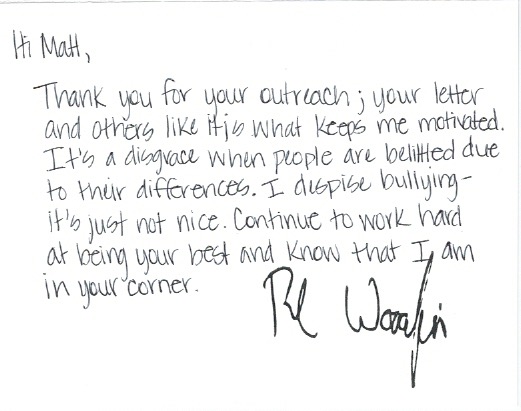 Hi Matt,
Thank you for your outreach; your letter
and others like it, is what keeps me motivated.
It's a disgrace when people are belittled due
to their differences. I despise bullying-
it's just not nice. Continue to work hard
at being your best and know that I am
in your corner.